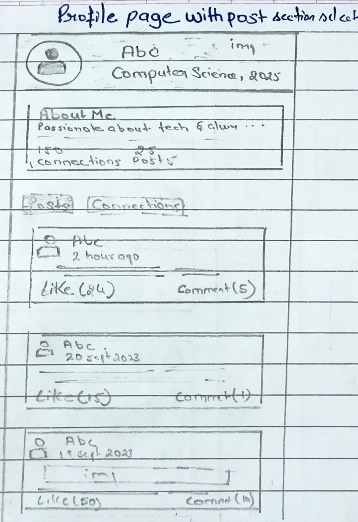 Profile page with post section select
Abc
img
Computer Science, 2025
About Me
Passionate about tech & alum ...
150 25
connections Posts
Posts Connections
Abc
2 hour ago
Like (24) Comment (5)
Abc
20 sept 2023
Like (15) Comment (1)
Abc
19 sept 2023
img
Like (50) Comment (10)